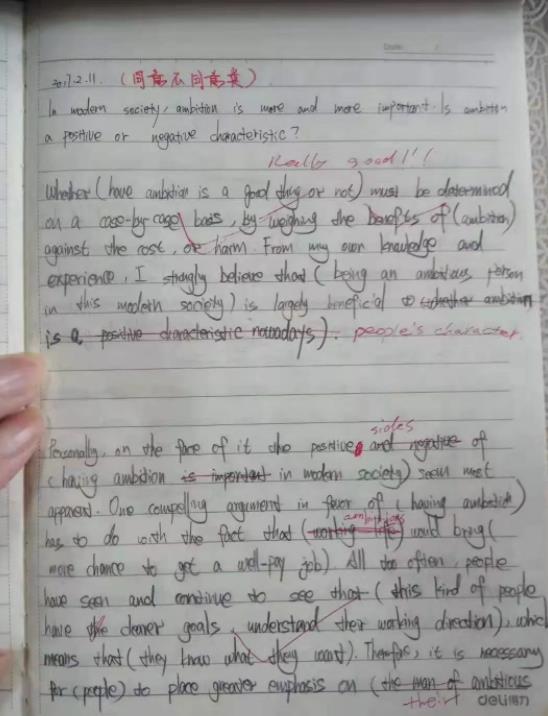 Date: /
2017.2.11. (同意不同意类)
In modern society, ambition is more and more important. Is ambition
a positive or negative characteristic?
Really good!!!
Whether (have ambition is a good thing or not) must be determined
on a case-by-case) basis, by weighing the benefits of (ambition)
against the cost, or harm. From my own knowledge and
experience, I strongly believe that (being an ambitious person
in this modern society) is largely beneficial to whether ambition
is a positive characteristic nowadays). people's character.
sides
Personally, on the face of it the positive and negative of
(having ambition is important in modern society) seem most
apparent. One compelling argument in favor of (having ambition)
ambitions
has to do with the fact that (working would bring (
more chance to get a well-pay job) All too often, people
have seen and continue to see that (this kind of people
have the clearer goals, understand their working direction), which
means that (they know what they want). Therefore, it is necessary
for (people) to place greater emphasis on (the man of ambitious
their
delixin